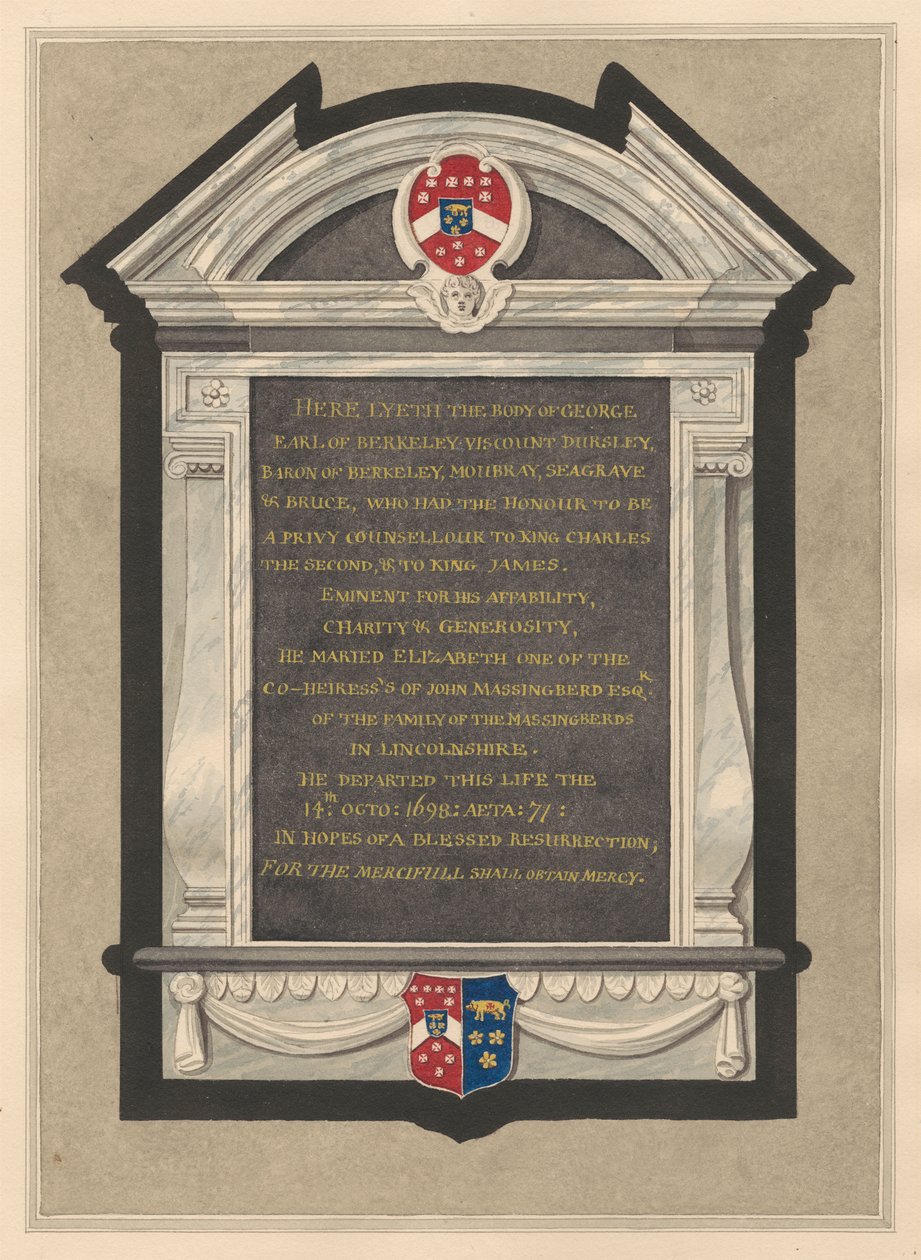 HERE LYETH THE BODY OF GEORGE
EARL OF BERKELEY VISCOUNT DURSLEY,
BARON OF BERKELEY, MOUBRAY, SEAGRAVE
& BRUCE, WHO HAD THE HONOUR TO BE
A PRIVY COUNSELLOUR TO KING CHARLES
THE SECOND, & TO KING JAMES.
EMINENT FOR HIS AFFABILITY,
CHARITY & GENEROSITY,
HE MARIED ELIZABETH ONE OF THE
CO-HEIRESS'S OF JOHN MASSINGBERD ESQR.
OF THE FAMILY OF THE MASSINGBERDS
IN LINCOLNSHIRE.
HE DEPARTED THIS LIFE THE
14th: OCTO: 1698: AETA: 71:
IN HOPES OF A BLESSED RESURRECTION;
FOR THE MERCIFULL SHALL OBTAIN MERCY.